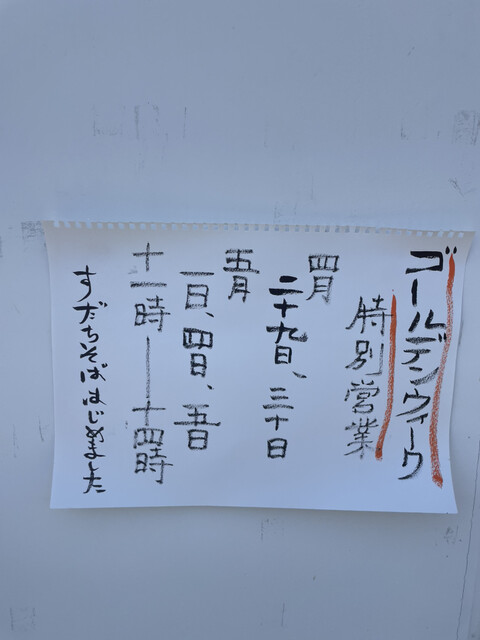 ゴールデンウィーク
特別営業
四月
二十九日、三十日
五月
一日、四日、五日
十一時――十四時
すだちそばはじめました